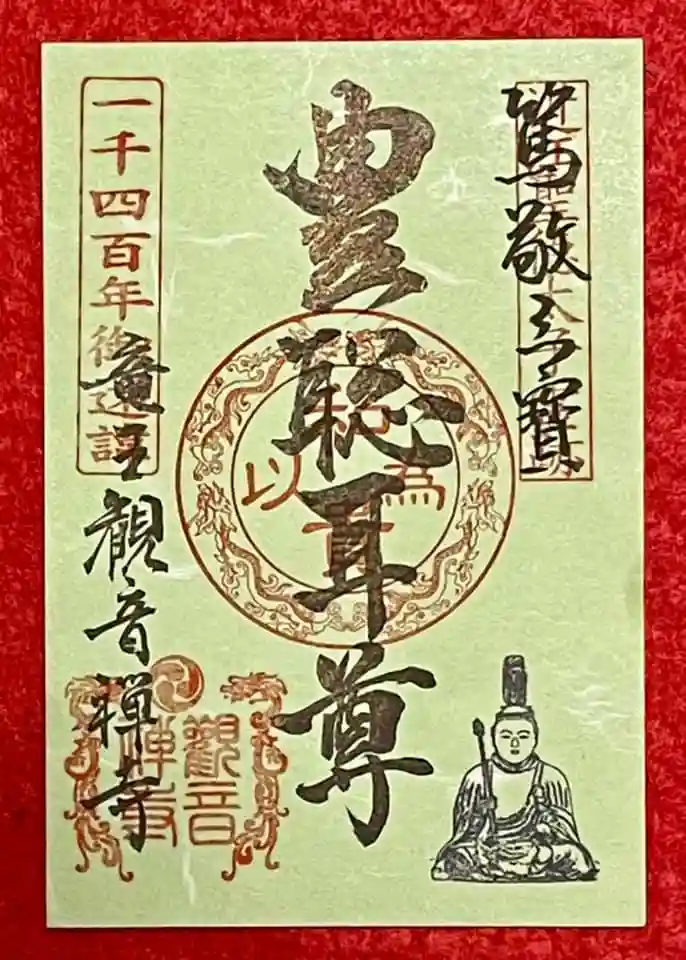 篤敬三寶
豊聡耳尊
以和為貴
一千四百年御遠諱
竜王観音禅寺
觀音禪寺